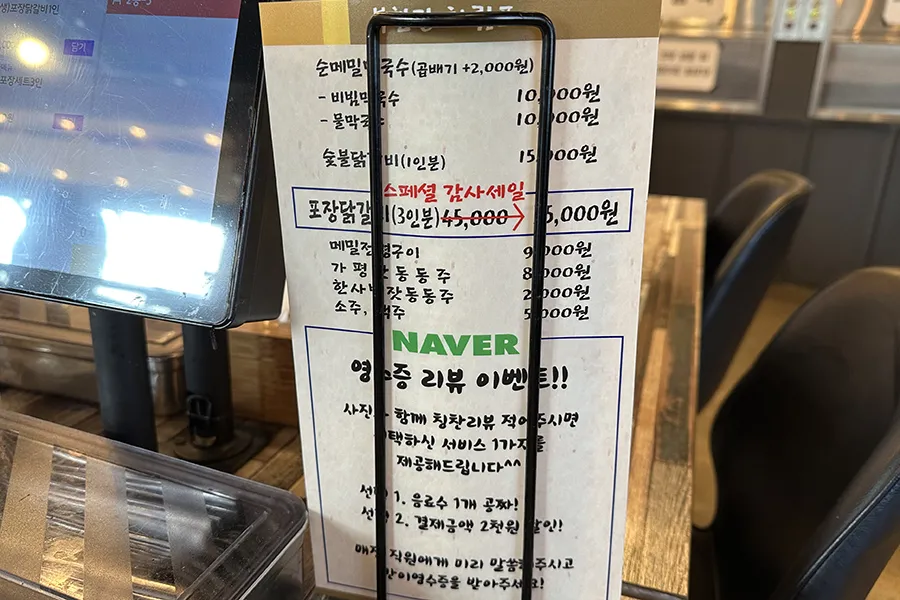 포장닭갈비1인
담기
포장세트3인
순메밀막국수(곱빼기 +2,000원)
- 비빔막국수 10,000원
- 물막국수 10,000원
숯불닭갈비(1인분) 15,000원
스페셜 감사세일
포장닭갈비(3인분) 45,000 → 5,000원
메밀전병구이 9,000원
가평잣동동주 8,000원
한사발잣동동주 2,000원
소주, 맥주 5,000원
NAVER
영수증 리뷰 이벤트!!
사진과 함께 칭찬리뷰 적어주시면
선택하신 서비스 1가지를
제공해드립니다^^
선택 1. 음료수 1개 공짜!
선택 2. 결제금액 2천원 할인!
매장 직원에게 미리 말씀해주시고
간이영수증을 받아주세요!